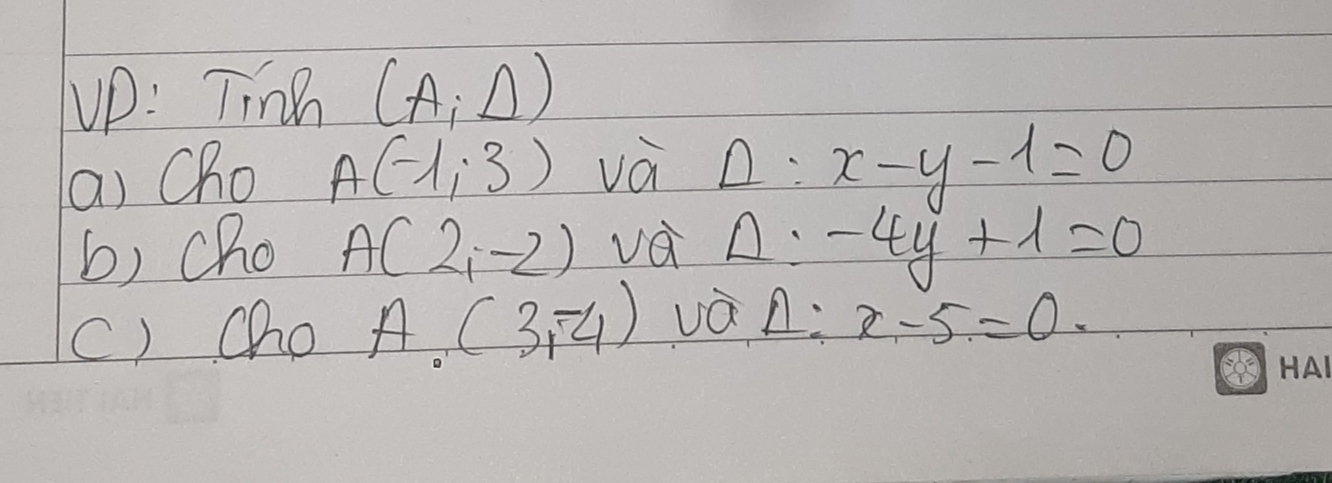 VD: Tính (A; Δ)
a) Cho A(-1; 3) và Δ: x - y - 1 = 0
b) Cho A(2; -2) và Δ: -4y + 1 = 0
c) Cho A (3; -4) và Δ: x - 5 = 0.
HAI